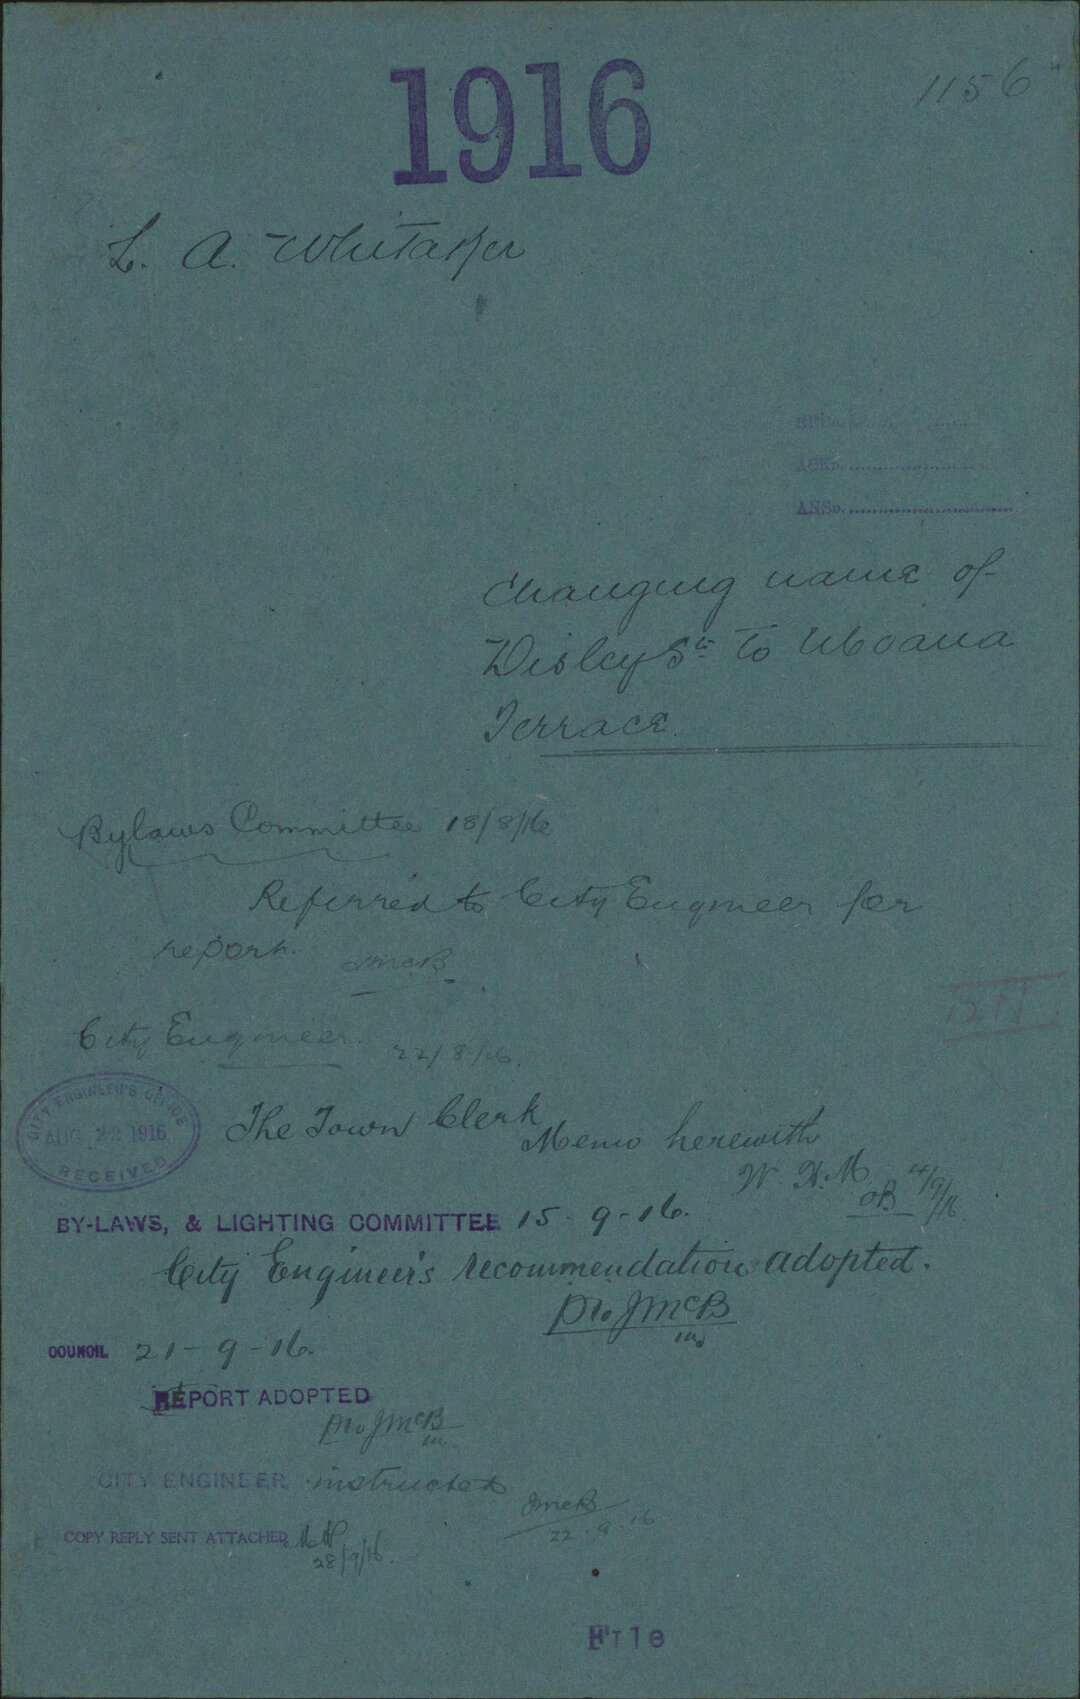 1916
1156
L. A. Whitaker
RECD.
ACKD.
ANSD.
Changing name of
Disley St to Moana
Terrace.
Bylaws Committee 18/8/16
Referred to City Engineer for
report.
JMcB
12N
City Engineer. 22/8/16.
CITY ENGINEER'S OFFICE
AUG 22 1916
RECEIVED
The Town Clerk
Memo herewith
W. H. M.
14/9/16
BY-LAWS, & LIGHTING COMMITTEE 15-9-16.
City Engineer's recommendation adopted.
pro JMcB
COUNCIL 21-9-16.
REPORT ADOPTED
pro JMcB
CITY ENGINEER instructed
JMcB
22 9 16
COPY REPLY SENT ATTACHED
28/9/16.
File